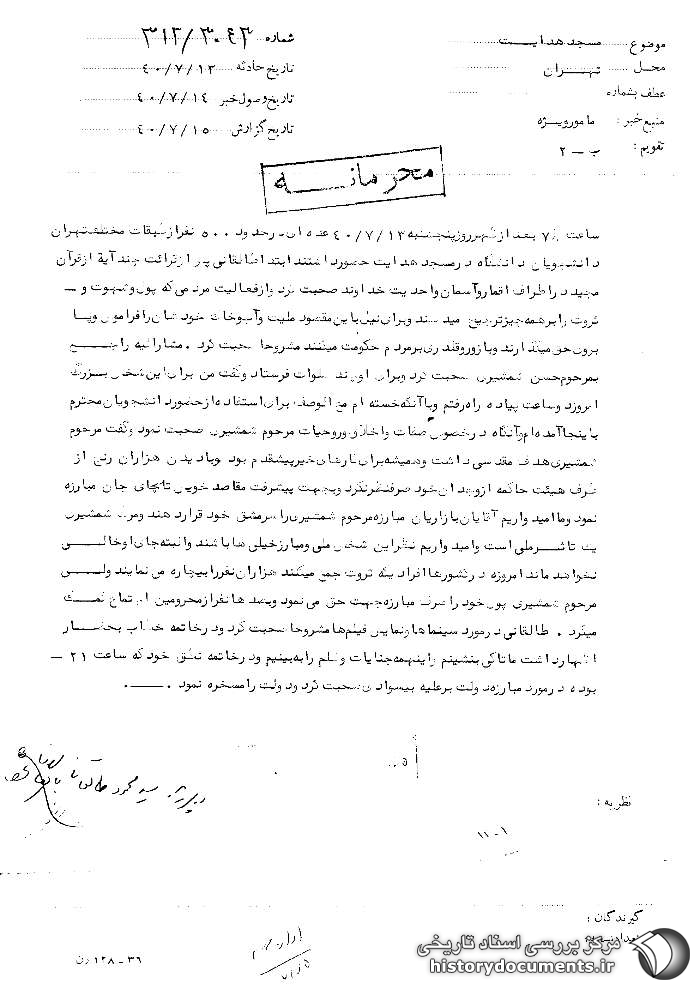 موضوع مسجد هدایت
محل تهران
عطف بشماره
منبع خبر : مامور ویژه
تقویم : ب - ۲
شماره ۳۱۲/۳۰۶۳
تاریخ حادثه ۴۰/۷/۱۳
تاریخ وصول خبر ۴۰/۷/۱۴
تاریخ گزارش ۴۰/۷/۱۵
محرمانه
ساعت ۷ بعد از ظهر روز پنجشنبه ۴۰/۷/۱۳ عده ای در حدود ۵۰۰ نفر از طبقات مختلف تهران
دانشجویان دانشگاه در مسجد هدایت حضور داشتند ابتدا طالقانی پس از قرائت چند آیة از قرآن
مجید در اطراف اقمار و آسمان واحدیت خداوند صحبت کرد و از فعالیت مردمی که پول و شهوت و -
ثروت را بر همه چیز ترجیح میدهند و برای نیل باین مقصود ملیت و آب و خاک خودشان را فراموش و پا
بروی حق میگذارند و با زور و قلدری بر مردم حکومت میکنند مشروحا صحبت کرد . مشارالیه راجع
بمرحوم حسن شمشیری صحبت کرد و برای او چند صلوات فرستاد و گفت من برای این شخص بزرگ
امروز دو ساعت پیاده راه رفتم و با آنکه خسته ام مع الوصف برای استفاده از حضور دانشجویان محترم
باینجا آمده ام و آنگاه در خصوص صفات و اخلاق و روحیات مرحوم شمشیری صحبت نمود و گفت مرحوم
شمشیری هدف مقدسی داشت و همیشه برای کارهای خیر پیشقدم بود و با دیدن هزاران رنج از
طرف هیئت حاکمه از وجدان خود صرفنظر نکرد و بجهت پیشرفت مقاصد خویش تا پای جان مبارزه
نمود و ما امیدواریم آقایان بازاریان مبارزه مرحوم شمشیری را سرمشق خود قرار دهند و مرگ شمشیری
یک تاثر ملی است و امیدواریم نظر این شخص ملی و مبارز خیلی ها باشند و البته جای او خالی
نخواهد ماند امروزه در کشورها افرادیکه ثروت جمع میکنند هزاران نفر را بیچاره می نمایند ولی
مرحوم شمشیری پول خود را صرف مبارزه جهت حق می نمود و بصدها نفر از محرومین اجتماع کمک
میکرد . طالقانی در مورد سینماها و نمایش فیلم ها مشروحا صحبت کرد و در خاتمه خطاب بحضار
اظهار داشت ما تا کی بنشینیم و اینهمه جنایات و ظلم را به بینیم و در خاتمه نطق خود که ساعت ۲۱ -
بوده در مورد مبارزه دولت بر علیه بیسوادی صحبت کرد و دولت را مسخره نمود .
نظریه :
۱-۱۱
گیرندگان :
۳۶ - ۱۲۸ ن
مرکز بررسی اسناد تاریخی
historydocuments.ir